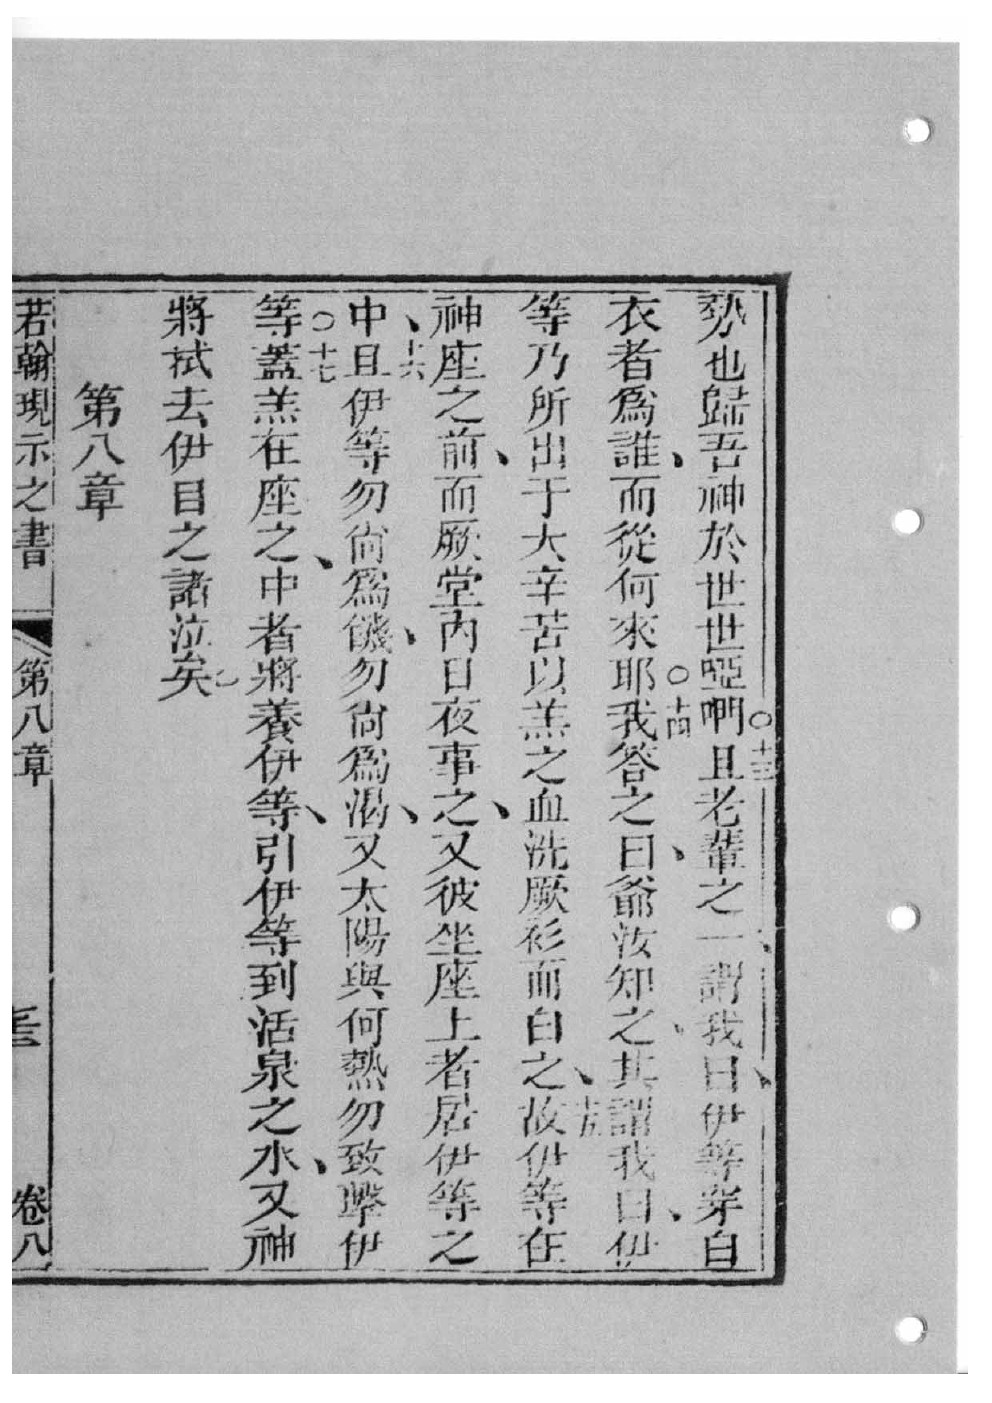 勢也歸吾神於世世啞𠵽○十三且老輩之一謂我曰伊等穿白
衣者爲誰而從何來耶○十四我答之曰爺汝知之其謂我曰伊
等乃所出于大辛苦以羔之血洗厥衫而白之十五故伊等在
神座之前而厥堂內日夜事之又彼坐座上者居伊等之
中十六且伊等勿尙爲饑勿尙爲渴又太陽與何熱勿致擊伊
等○十七蓋羔在座之中者將養伊等引伊等到活泉之水又神
將拭去伊目之諸泣矣
第八章
若翰現示之書 第八章 卷八